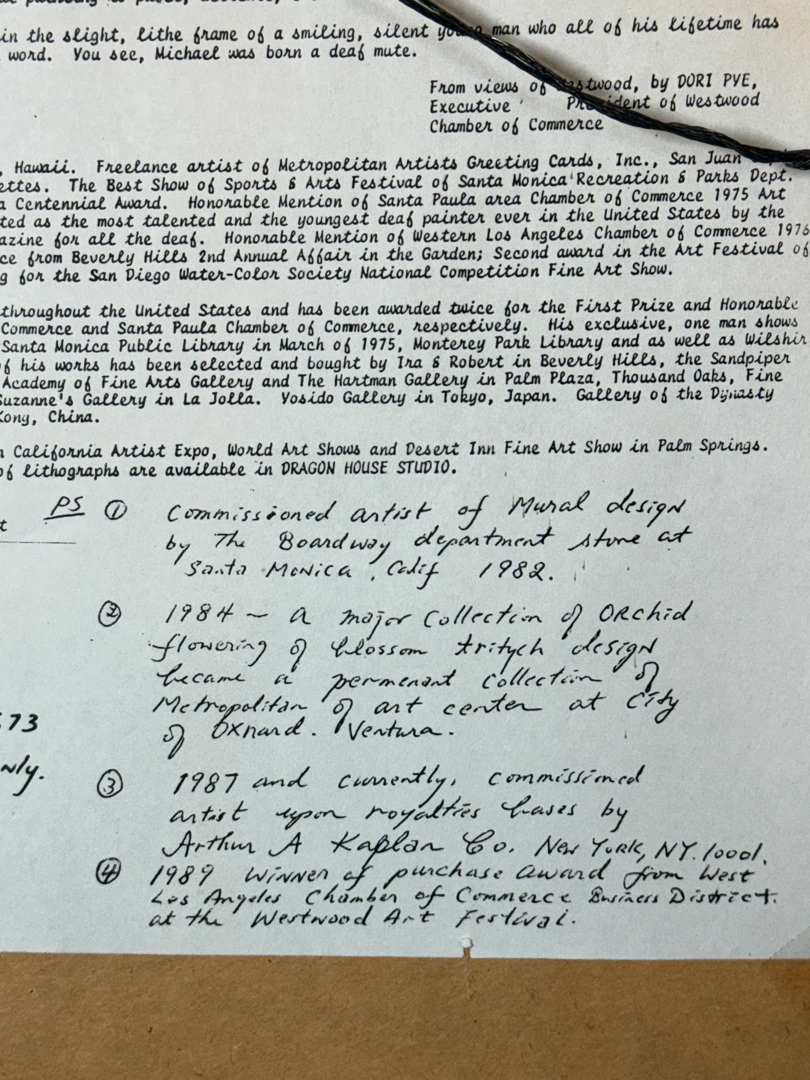 in the slight, lithe frame of a smiling, silent young man who all of his lifetime has
word. You see, Michael was born a deaf mute.
From views of Westwood, by DORI PYE,
Executive President of Westwood
Chamber of Commerce
, Hawaii. Freelance artist of Metropolitan Artists Greeting Cards, Inc., San Juan
ettes. The Best Show of Sports & Arts Festival of Santa Monica Recreation & Parks Dept.
a Centennial Award. Honorable Mention of Santa Paula area Chamber of Commerce 1975 Art
ted as the most talented and the youngest deaf painter ever in the United States by the
azine for all the deaf. Honorable Mention of Western Los Angeles Chamber of Commerce 1976
ce from Beverly Hills 2nd Annual Affair in the Garden; Second award in the Art Festival of
g for the San Diego Water-Color Society National Competition Fine Art Show.
throughout the United States and has been awarded twice for the First Prize and Honorable
Commerce and Santa Paula Chamber of Commerce, respectively. His exclusive, one man shows
Santa Monica Public Library in March of 1975, Monterey Park Library and as well as Wilshir
f his works has been selected and bought by Ira & Robert in Beverly Hills, the Sandpiper
Academy of Fine Arts Gallery and The Hartman Gallery in Palm Plaza, Thousand Oaks, Fine
Suzanne's Gallery in La Jolla. Yosido Gallery in Tokyo, Japan. Gallery of the Dynasty
Kong, China.
n California Artist Expo, World Art Shows and Desert Inn Fine Art Show in Palm Springs.
of lithographs are available in DRAGON HOUSE STUDIO.
t
PS ① Commissioned artist of Mural design
by The Boardway department store at
Santa Monica, Calif 1982.
② 1984 ~ a major collection of ORchid
flowering of blossom tritych design
became a permenant collection of
Metropolitan of art center at City
of Oxnard. Ventura.
73
nly.
③ 1987 and currently, commissioned
artist upon royalties bases by
Arthur A Kaplan Co. New York, NY. 10001.
④ 1989 Winner of purchase award from West
Los Angeles Chamber of Commerce Business District.
at the Westwood Art Festival.